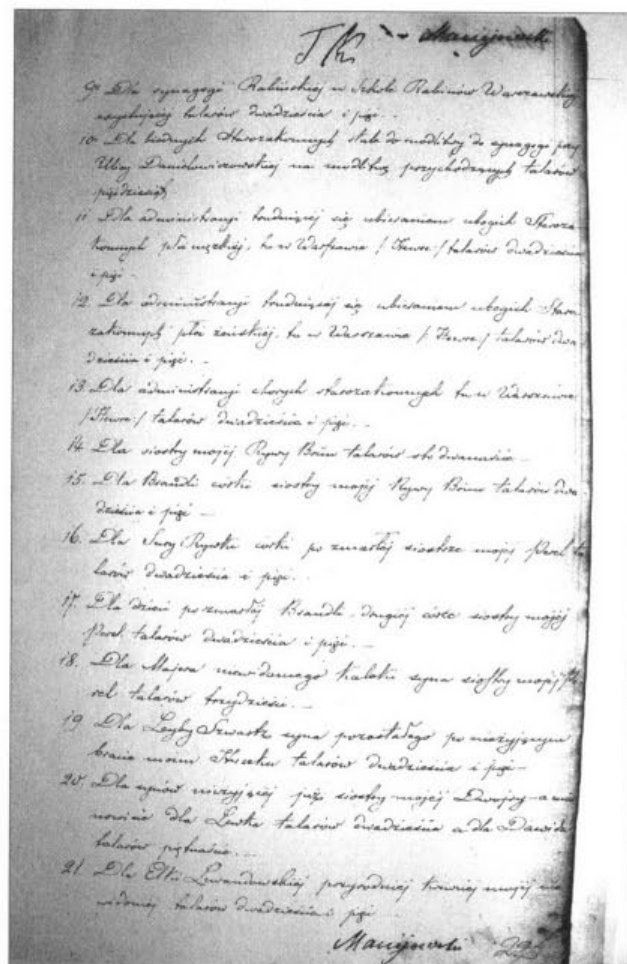 9. Dla synagogi Rabińskiej w Szkole Rabinów Warszawskiej
i pięć. –
10. Dla biednych starozakonnych do modlitwy do synagogi przy
Ulicy Daniłowiczowskiej na modlitwę przychodzących talarów
pięćdziesiąt
11. Dla administracji trudniącej się ubieraniem ubogich Staroza-
konnych płci męzkiej, tu w Warszawie talarów dwadzieścia
i pięć –
12. Dla administracji trudniącej się ubieraniem ubogich Staro-
zakonnych płci żeńskiej, tu w Warszawie talarów dwa-
dzieścia i pięć. –
13. Dla administracji chorych starozakonnych tu w Warszawie
talarów dwadzieścia i pięć. –
14. Dla siostry mojej Rywy Brün talarów sto dwanaście –
15. Dla Brandli córki siostry mojej Rywy Brün talarów dwa-
dzieścia i pięć –
16. Dla Sury Rywki córki po zmarłej siostrze mojej Perel ta-
larów dwadzieścia i pięć. –
17. Dla dzieci po zmarłej Brandli drugiej córce siostry mojej
Perel talarów dwadzieścia i pięć. –
18. Dla Majera niewidomego kaleki syna siostry mojej Pe-
rel talarów trzydzieści. –
19. Dla Leyby Szwartz syna pozostałego po nieżyjącym
bracie moim talarów dwadzieścia i pięć –
20. Dla synów nieżyjącej już siostry mojej Dwojry – a mia-
nowicie dla Lewka talarów dwadzieścia a dla Dawida
talarów piętnaście. –
21. Dla Elki Lewandowskiej przyrodniej krewnej mojej nie-
widomej talarów dwadzieścia i pięć